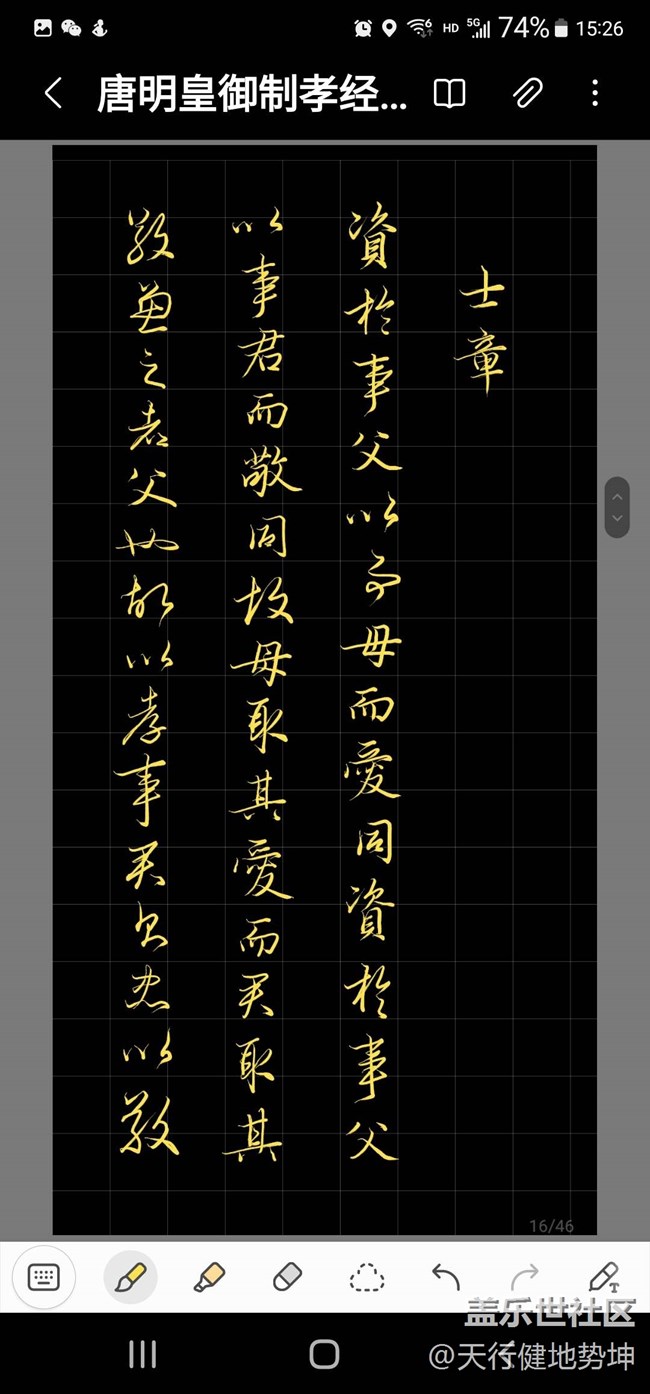 HD 5G 74% 15:26
唐明皇御制孝经...
士章
資於事父以事母而愛同資於事父
以事君而敬同故母取其愛而君取其
敬兼之者父也故以孝事君則忠以敬
16/46
盖乐世社区
@天行健地势坤